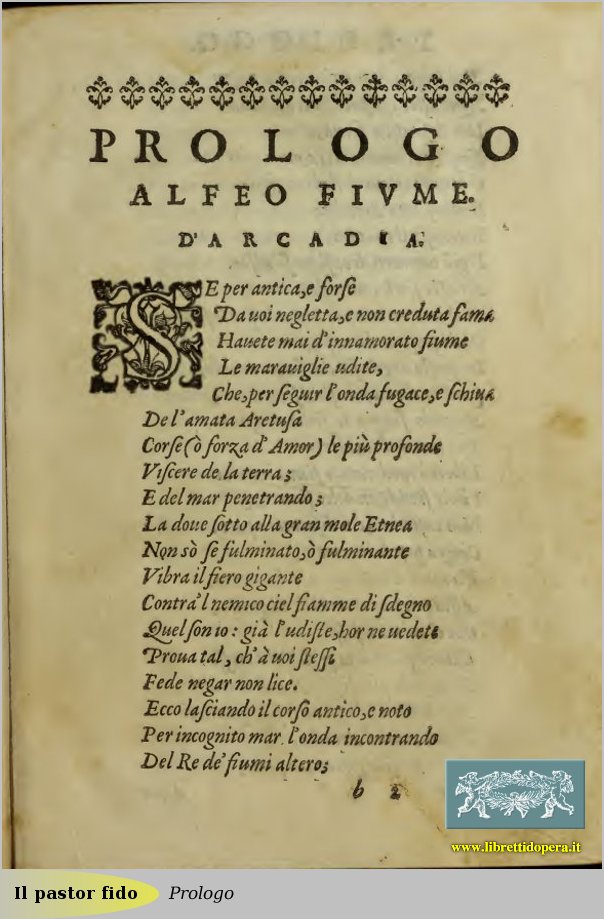 PROLOGO
ALFEO FIVME.
D'ARCADIA.
SE per antica, e forſe
Da uoi negletta, e non creduta fama
Hauete mai d'innamorato fiume
Le marauiglie udite,
Che, per ſeguir l'onda fugace, e ſchiua
De l'amata Aretuſa
Corſe (ò forza d'Amor) le più profonde
Viſcere de la terra;
E del mar penetrando;
La doue ſotto alla gran mole Etnea
Non sò ſe fulminato, ò fulminante
Vibra il fiero gigante
Contra'l nemico ciel fiamme di ſdegno
Quel ſon io: già l'udiſte, hor ne uedete
Proua tal, ch'à uoi ſteſſi
Fede negar non lice.
Ecco laſciando il corſo antico, e noto
Per incognito mar l'onda incontrando
Del Re de' fiumi altero;
b 2
www.librettidopera.it
Il pastor fido Prologo